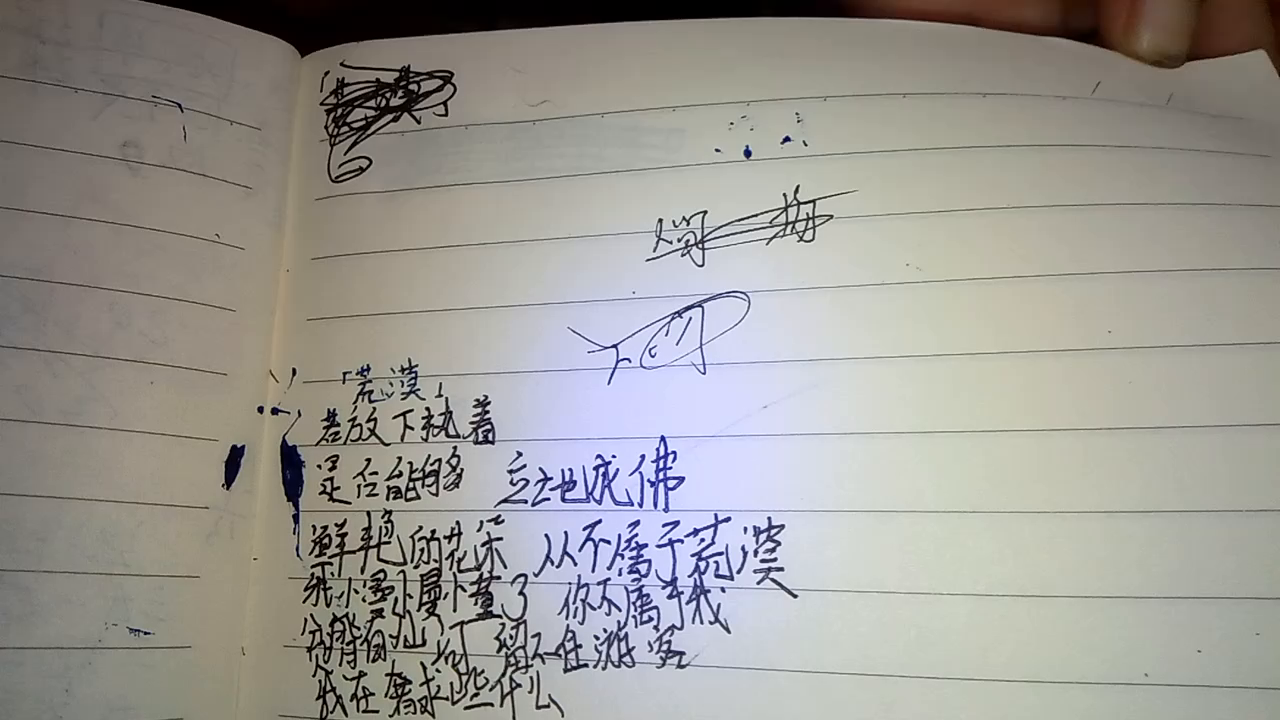 「荒漠」
若放下执着
是否能够 立地成佛
鲜艳的花朵 从不属于荒漠
我慢慢懂了 你不属于我
背 山河 留不住游客
我在奢求些什么